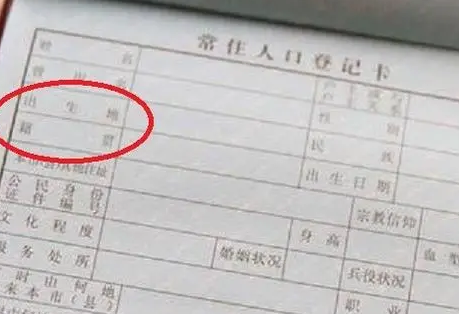 常住人口登记卡
姓 名 户主或与户主关系
曾用名 性 别
出生地 民 族
籍 贯 出生日期
本市(县)其他住址 宗教信仰
公民身份证件编号 身 高 血型
文化程度 婚姻状况 兵役状况
服务处所 职 业
何时由何地迁来本市(县)